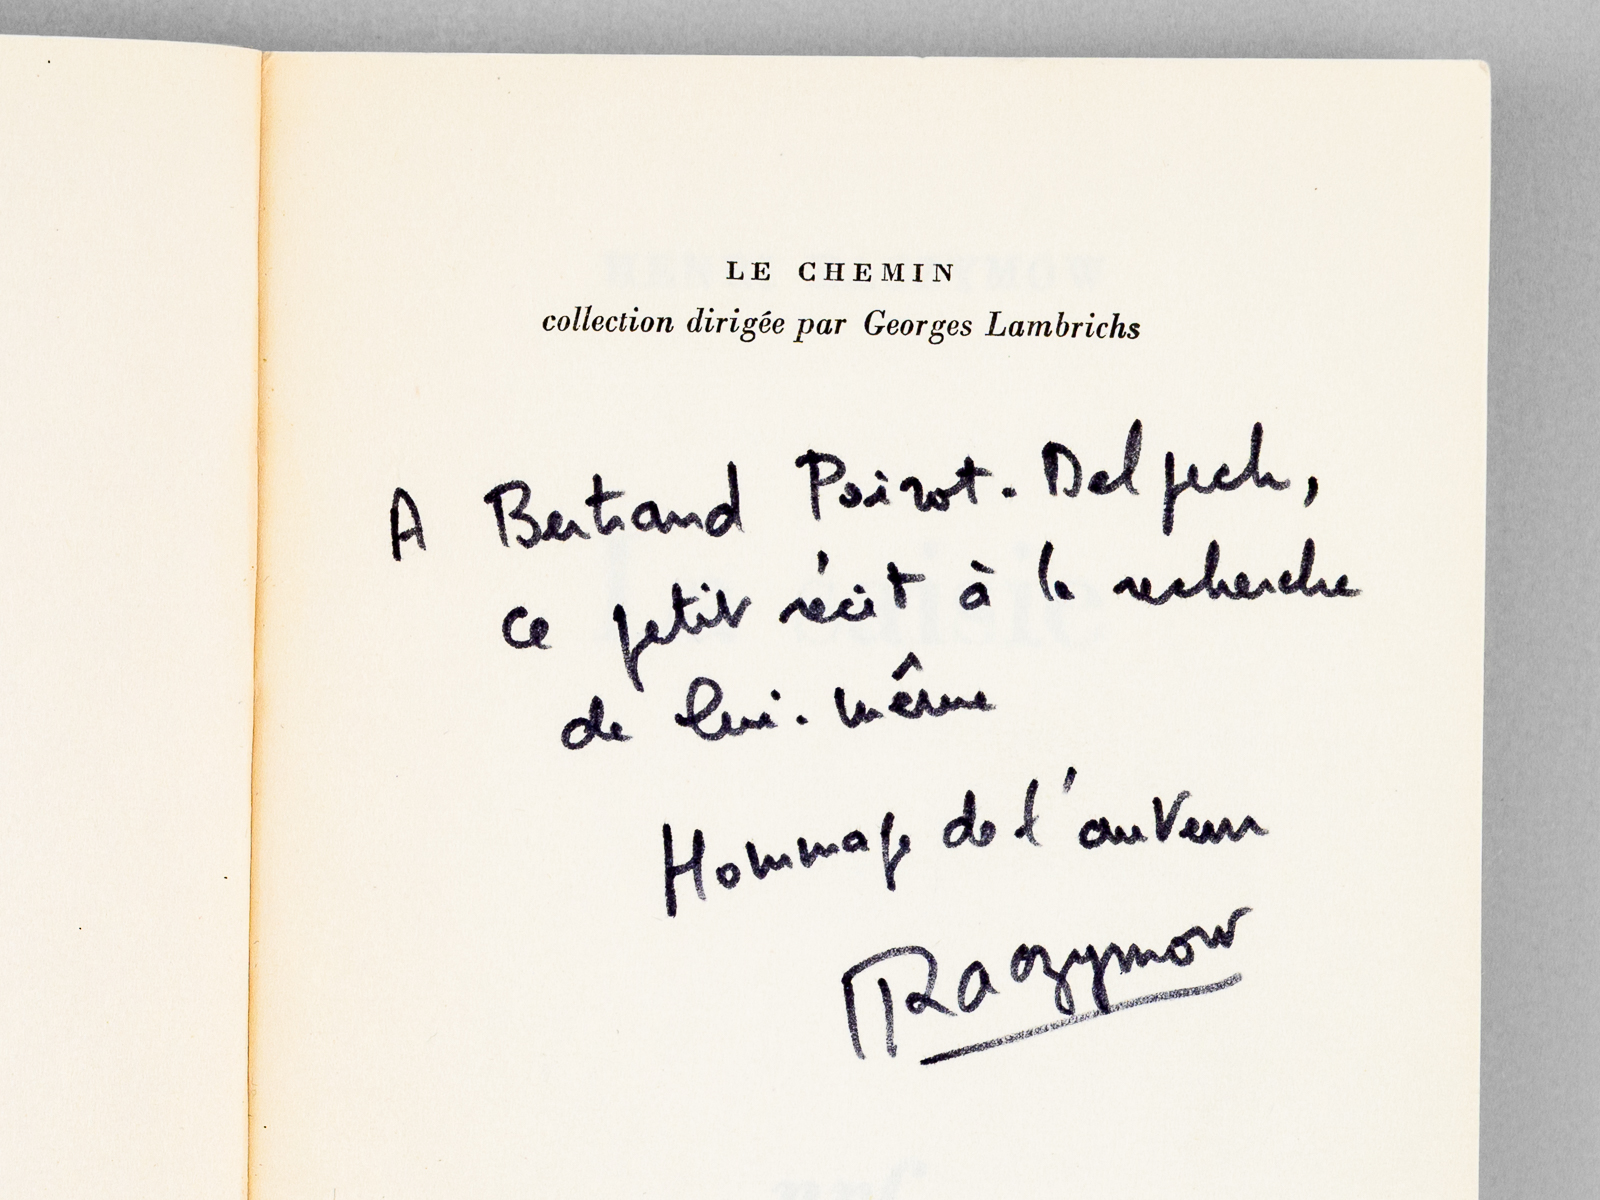 LE CHEMIN
collection dirigée par Georges Lambrichs
A Bertrand Poirot-Delpech,
ce petit récit à la recherche
de lui-même
Hommage de l'auteur
Raczymow